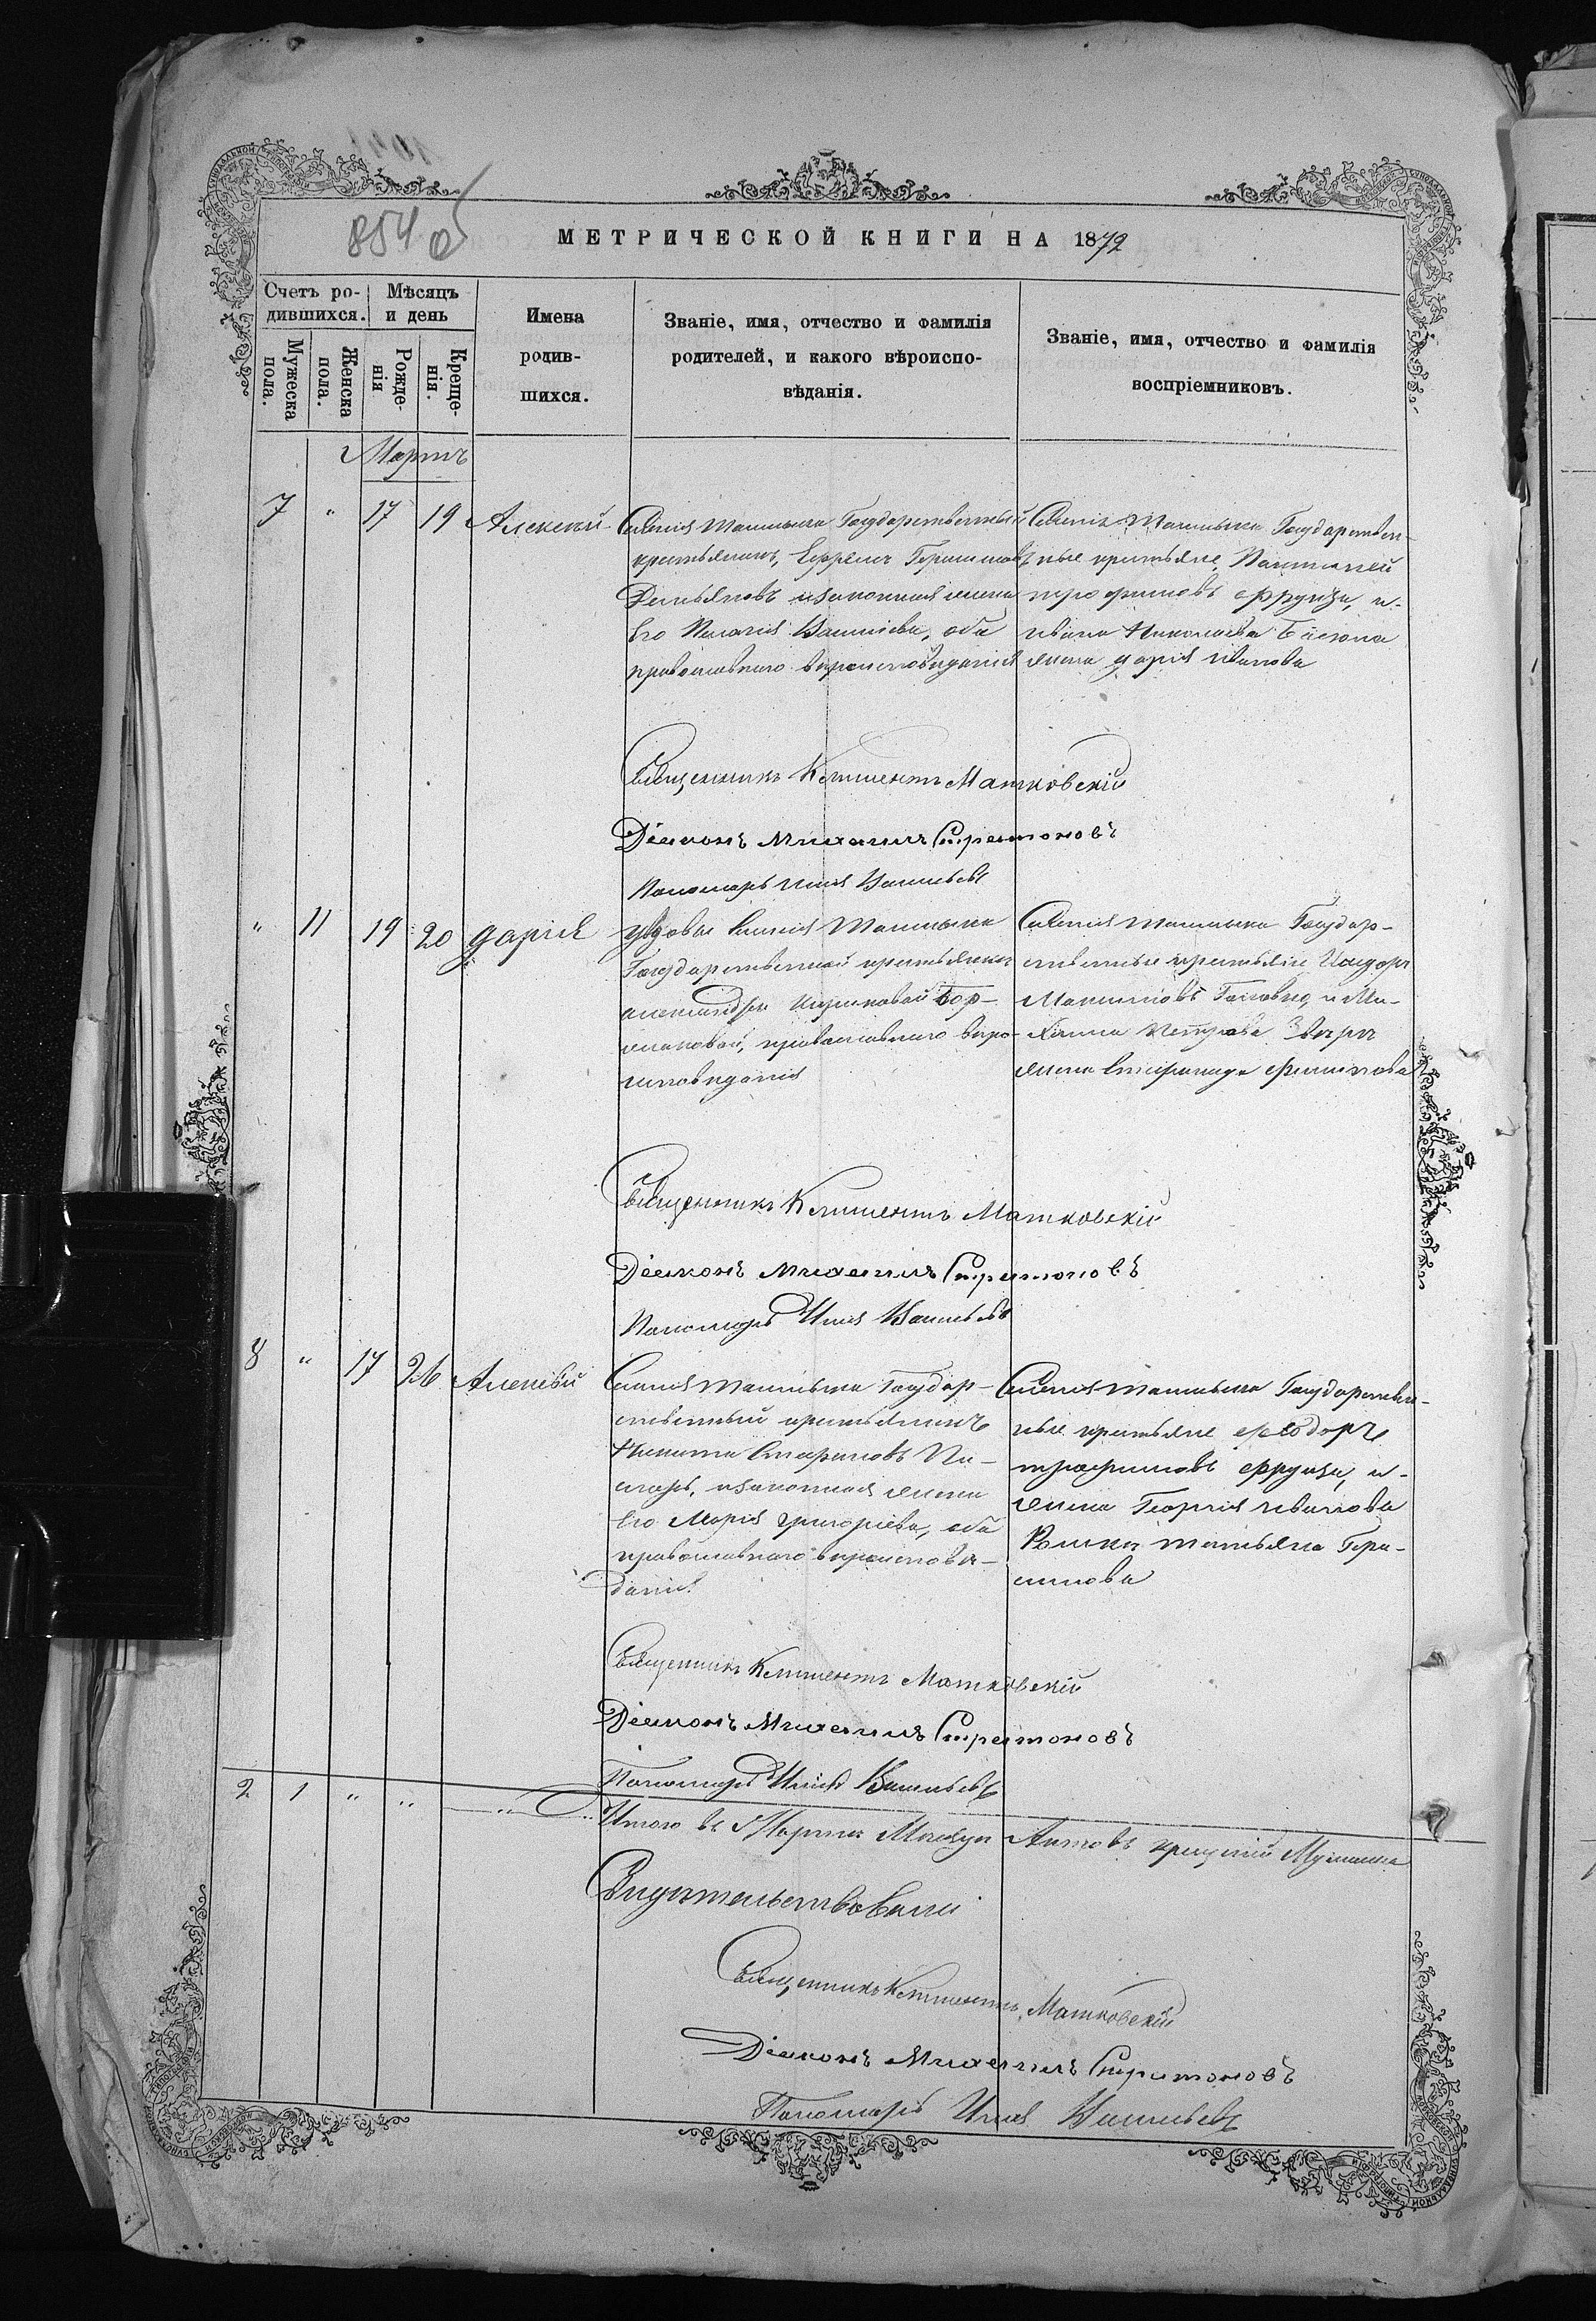 854 об
МЕТРИЧЕСКОЙ КНИГИ НА 1872
Счетъ ро-
дившихся.
Мѣсяцъ
и день
Мужеска
пола.
Женска
пола.
Рожде-
нія
Креще-
нія.
Имена
родив-
шихся.
Званіе, имя, отчество и фамилія
родителей, и какого вѣроиспо-
вѣданія.
Званіе, имя, отчество и фамилія
воспріемниковъ.
Мартъ
7 " 17 19 Алексей
Селенія Ташлыка Государственный
крестьянинъ, Ефремъ Герасимовъ
Демьяновъ изаконная жена
Его Пелагія Василіева, оба
православнаго вероисповеданія
Селенія Ташлыка Государствен-
ные крестьяне, Пантелей
трофимовъ Ффрунза, и-
ивана Николаева
жена дарія иванова
Священникъ Климентъ Матковскій
Діаконъ Михаилъ Стратоновъ
Пономарь Илія Васильевъ
" 11 19 20 дарія
удовы Селенія Ташлыка
Государственной крестьянки
александры
православнаго веро-
исповеданія
Селенія Ташлыка Государ-
ственные крестьяне Исидоръ
Максимовъ и Ми-
хаила Петрова
жена Стефанида Филипова
Священникъ Климентъ Матковскій
Діаконъ Михаилъ Стратоновъ
Пономарь Илія Васильевъ
8 " 17 26 Алексѣй
Селенія Ташлыка Государ-
ственный крестьянинъ
Никита Стефановъ Пи-
сларь, изаконная жена
Его Марія григоріева, оба
православнаго вероисповѣ-
данія
Селенія Ташлыка Государствен-
ные крестьяне феодоръ
трофимовъ Ффрунза, и-
жена Георгія иванова
татьяна Гера-
симова
Священникъ Климентъ Матковскій
Діаконъ Михаилъ Стратоновъ
Пономарь Илія Васильевъ
2 1 " " "
Итого въ Мартѣ Месяцѣ Актовъ крещеній
Свидѣтельствовали
Священникъ Климентъ Матковскій
Діаконъ Михаилъ Стратоновъ
Пономарь Илія Васильевъ